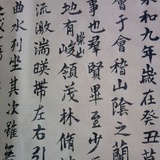 和九年歲在癸丑
會于會稽山陰之蘭
事也羣賢畢至少
地有崇山峻領茂林脩
流激湍暎帶左右引
曲水列坐其次雖無